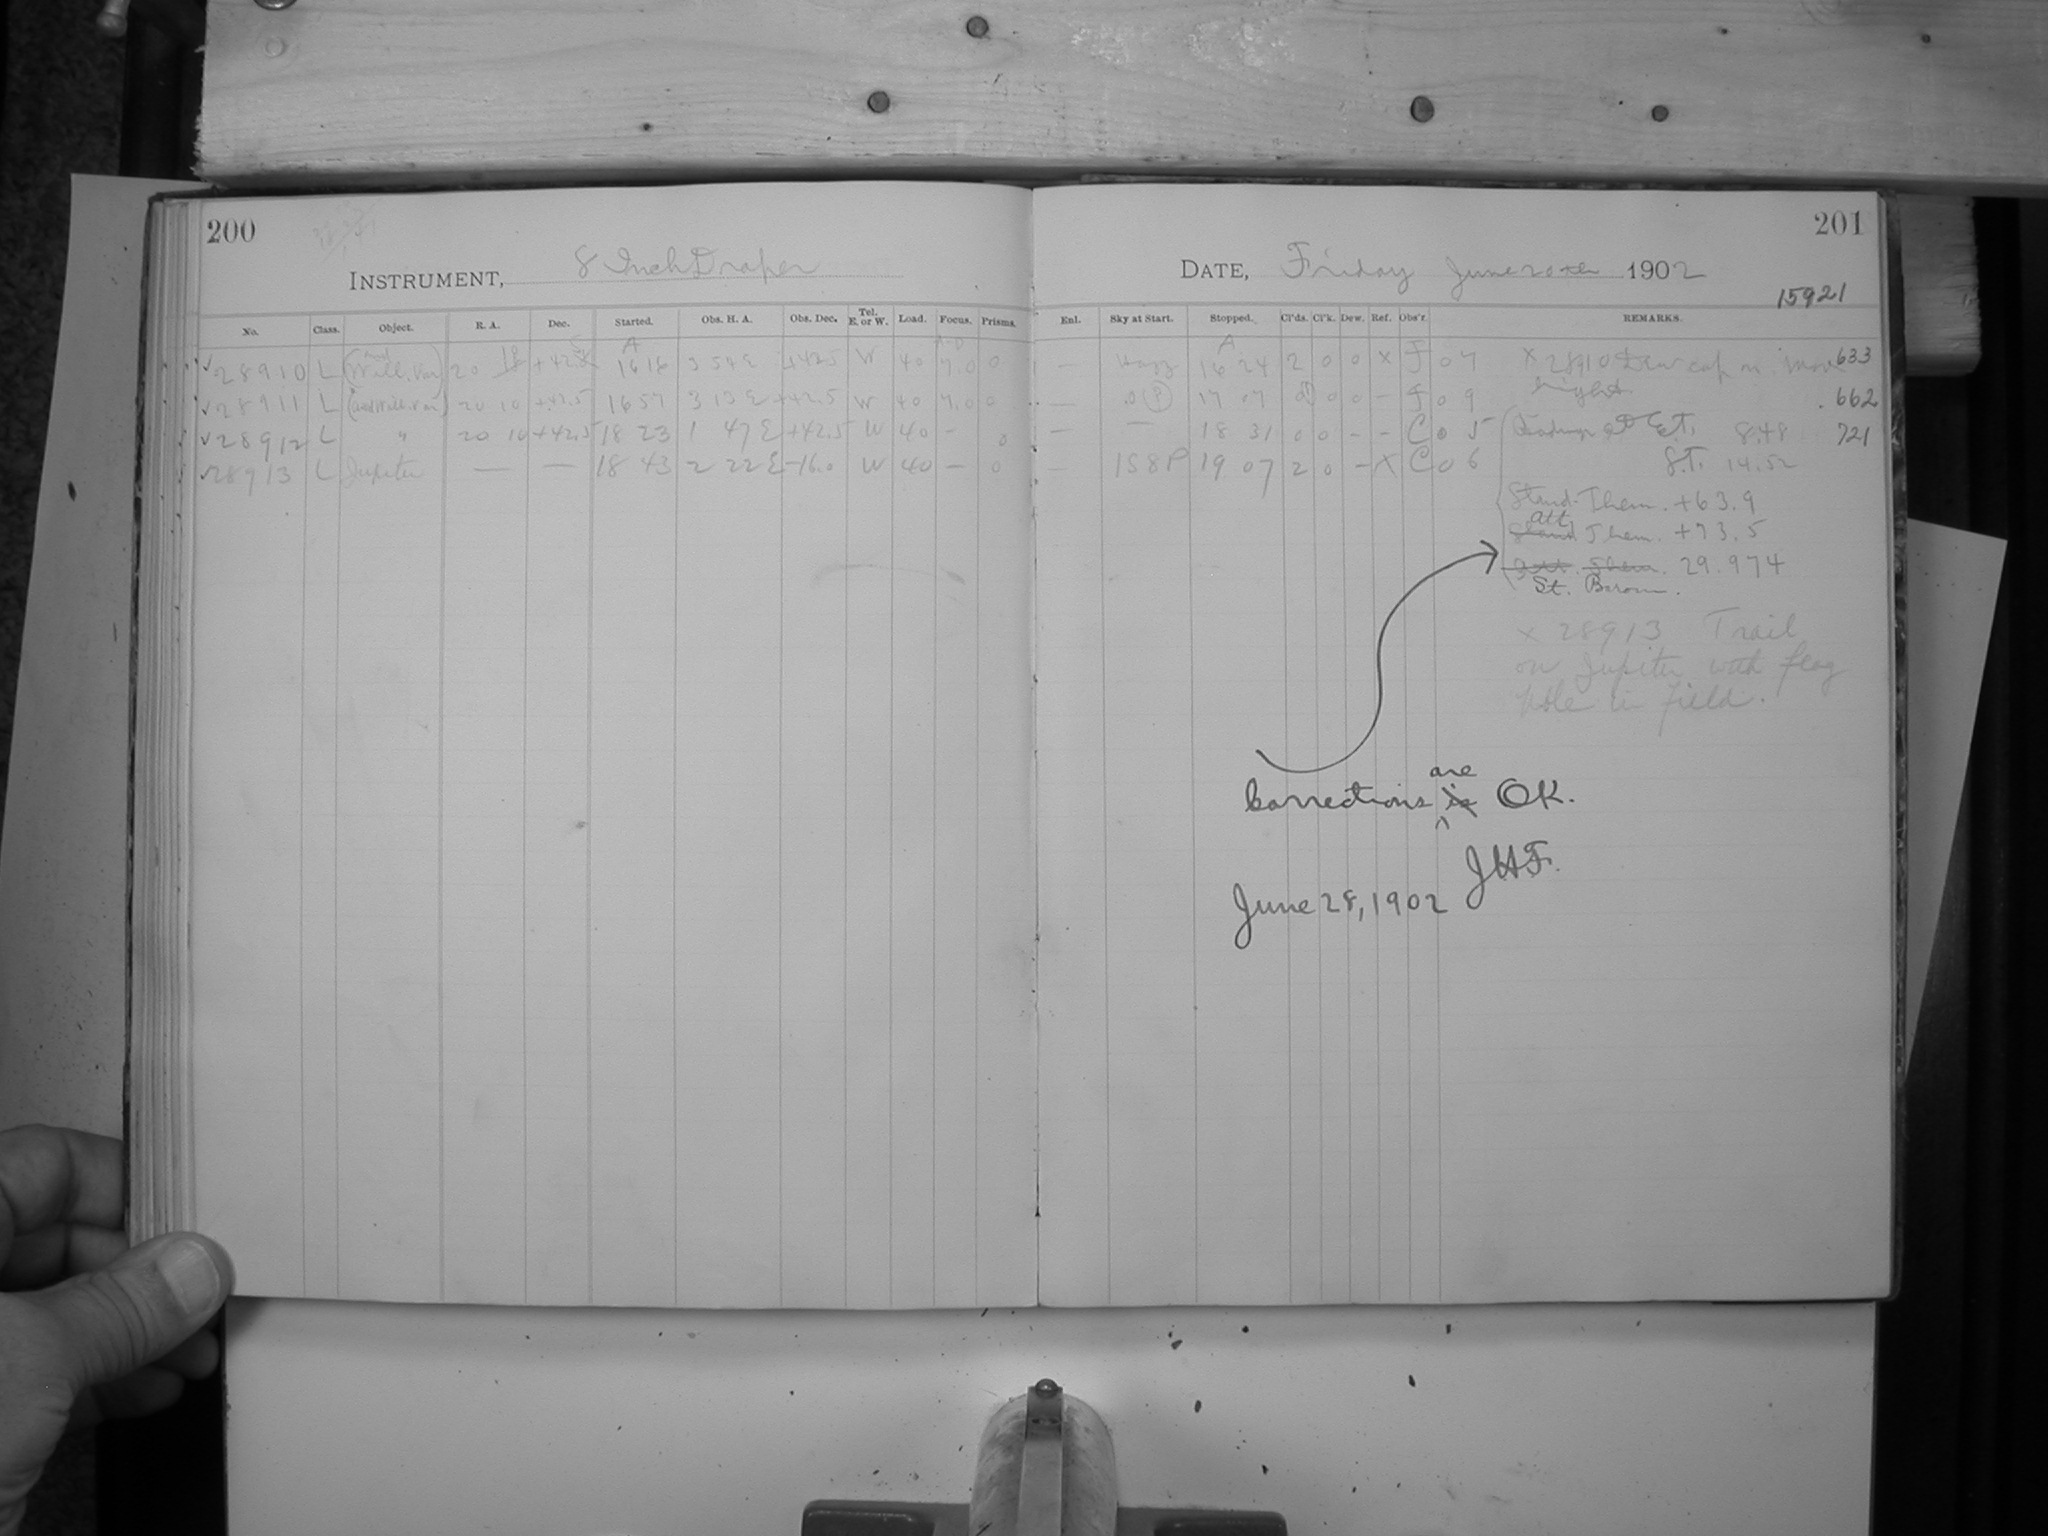 200
INSTRUMENT, 8 Inch Draper
No. Class. Object. R. A. Dec. Started. Obs. H. A. Obs. Dec. Tel. E. or W. Load. Focus. Prisms.
28910 L Will. Var 20 +42.5 A 16 16 3 54 E +42.5 W 40 7.0 0
28911 L 20 10 +42.5 16 57 3 13 E +42.5 W 40 7.0 0
28912 L " 20 10 +42.5 18 23 1 47 E +42.5 W 40 – 0
28913 L Jupiter — — 18 43 2 22 E -16.0 W 40 – 0
201
DATE, Friday June 20th 1902
15921
Enl. Sky at Start. Stopped. Cl'ds. Cl'k. Dew. Ref. Obs'r. REMARKS.
— Hazy A 16 24 2 0 0 x F 07 x 28910 Dew cap on. Moon 633
bright
— 17 07 0 0 – F 09 662
— — 18 31 0 0 – – C 05 E.T. 8.48 721
— 1S8P 19 07 2 0 – X C 06 S.T. 14.52
Stand. Them. +63.9
att
Stand Them. +73.5
Att. Them. 29.974
St. Barom.
x 28913 Trail
on Jupiter with flag
pole in field.
are
Corrections is OK.
J.H.F.
June 28, 1902